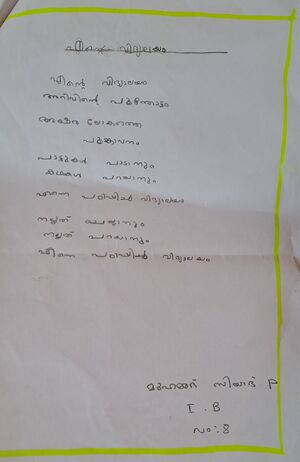 എന്റെ വിദ്യാലയം
എന്റെ വിദ്യാലയം
അറിവിന്റെ പൂന്തോട്ടം
അക്ഷര ലോകത്തെ
പൂങ്കാവനം
പാട്ടുകൾ പാടാനും
കഥകൾ പറയാനും
എന്നെ പഠിപ്പിച്ച വിദ്യാലയം
നല്ലത് ചെയ്യാനും
നല്ലത് പറയാനും
എന്നെ പഠിപ്പിച്ച വിദ്യാലയം
മുഹമ്മദ് സിയാദ് P
I . B
No:8